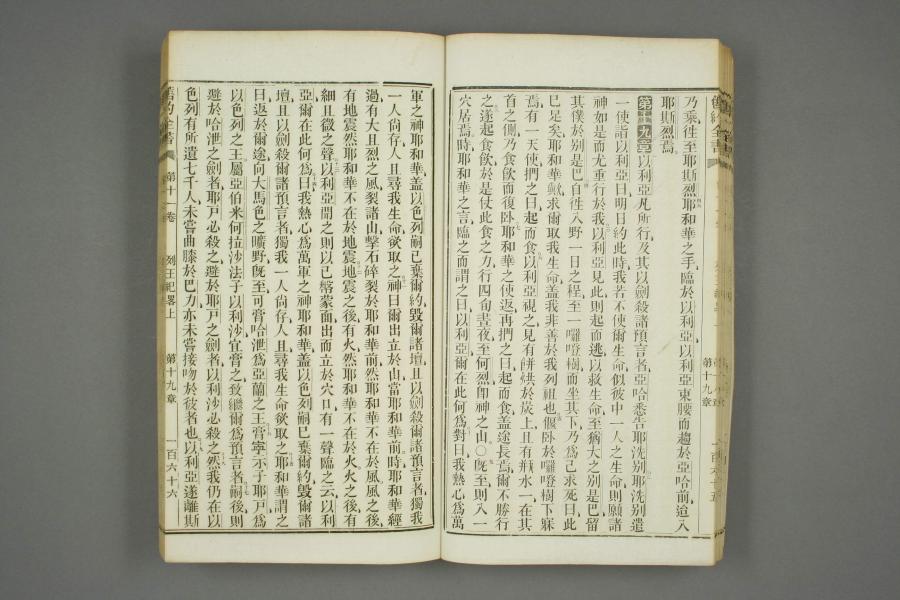 乃乘徃至耶斯烈耶和華之手臨於以利亞以利亞束腰而趨於亞哈前這入
耶斯烈焉
第十九章以利亞凡所行及其以劍殺諸預言者亞哈悉告耶洗別耶洗別遣
一使詣以利亞曰明日約此時我若不使爾生命似彼中一人之生命則願諸
神如是而尤重行於我以利亞見此則起而逃以救生命至猶大之別是巴留
其僕於別是巴自徃入野一日之程至一囉噔樹而坐其下乃爲己求死曰此
已足矣耶和華歟求爾取我生命蓋我非善於我列祖也偃卧於囉噔樹下寐
焉有一天使捫之曰起而食以利亞視之見有餅烘於炭上且有瓶水一在其
首之側乃食飲而復卧耶和華之使返再捫之曰起而食盖途長焉爾不勝行
之遂起食飲於是仗此食之力行四旬晝夜至何烈卽神之山○旣至則入一
穴居焉時耶和華之言臨之而謂之曰以利亞爾在此何爲對曰我熱心爲萬
軍之神耶和華蓋以色列嗣已棄爾約毀爾諸壇且以劍殺爾諸預言者獨我
一人尙存人且尋我生命欲取之神曰爾出立於山當耶和華前時耶和華經
過有大且烈之風裂諸山擊石碎裂於耶和華前然耶和華不在於風風之後
有地震然耶和華不在於地震地震之後有火然耶和華不在於火火之後有
細且微之聲以利亞聞之則以己㡚蒙面出而立於穴口有一聲臨之云以利
亞爾在此何爲曰我熱心爲萬軍之神耶和華蓋以色列嗣已棄爾約毀爾諸
壇且以劍殺爾諸預言者獨我一人尙存人且尋我生命欲取之耶和華謂之
曰返於爾途向大馬色之曠野旣至可膏哈泄爲亞蘭之王膏寧示子耶戸爲
以色列之王屬亞伯米何拉沙法子以利沙宜膏之致繼爾爲預言者嗣後則
避於哈泄之劍者耶戸必殺之避於耶戸之劍者以利沙必殺之然我仍在以
色列有所遺七千人未嘗曲膝於巴力亦未嘗接吻於彼者也以利亞遂離斯
舊約全書 第十一卷 列王紀畧上 第十九章 一百六十六